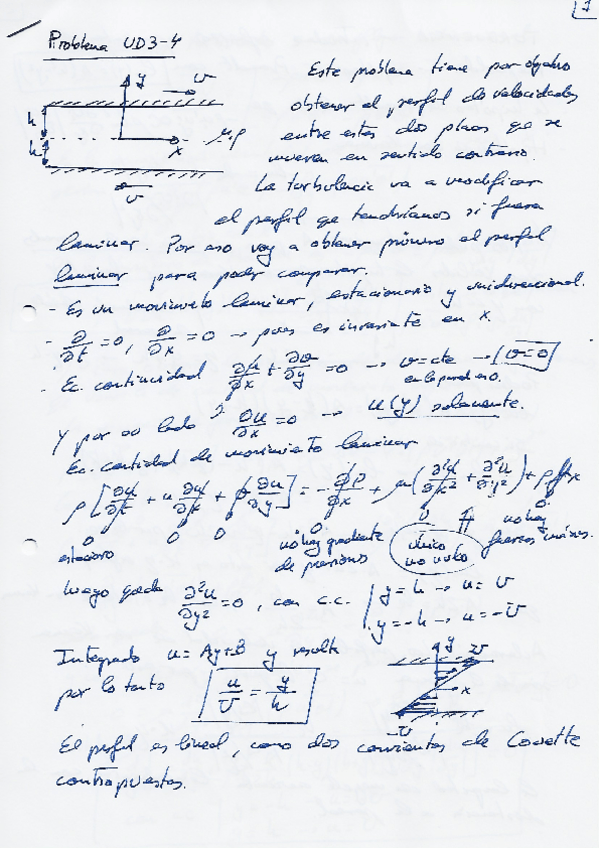 1
Problema UD3-4
y
U
h
h
x
μ, ρ
U
Este problema tiene por objetivo
obtener el perfil de velocidades
entre estas dos placas que se
mueven en sentido contrario.
La turbulencia va a modificar
el perfil que tendríamos si fuera
laminar. Por eso voy a obtener primero el perfil
laminar para poder comparar.
- Es un movimiento laminar, estacionario y unidireccional.
- ∂/∂t = 0, ∂/∂x = 0 → pues es invariante en x.
- Ec. continuidad ∂u/∂x + ∂v/∂y = 0 → v = cte → v = 0
en la pared es 0.
Y por otro lado ∂u/∂x = 0 → u(y) solamente.
Ec. cantidad de movimiento laminar
ρ [∂u/∂t + u ∂u/∂x + v ∂u/∂y] = -∂p/∂x + μ(∂²u/∂x² + ∂²u/∂y²) + ρ fx
0 0 0 0 0 0
estacionario
no hay gradiente
de presiones
único
no nulo
no hay
fuerzas másicas.
luego queda ∂²u/∂y² = 0, con c.c. y = h → u = U
y = -h → u = -U
Integrado u = Ay + B y resulta
por lo tanto u/U = y/h
y
U
x
-U
El perfil es lineal, como dos corrientes de Couette
contrapuestas.